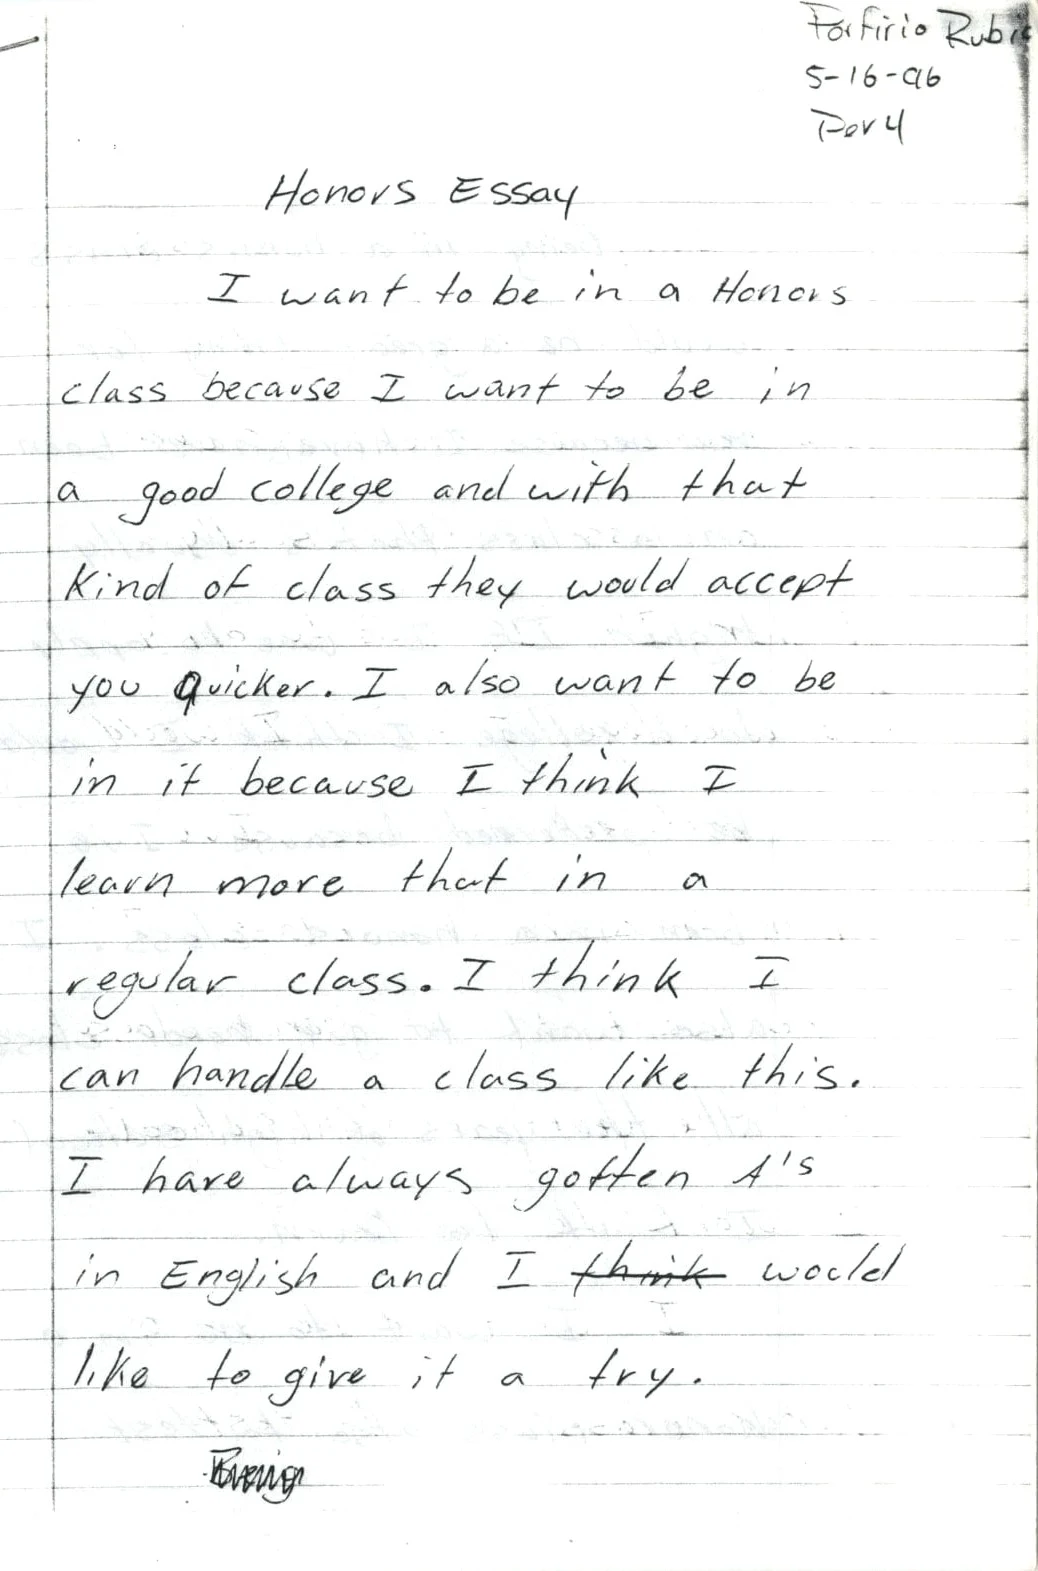 Porfirio Rubi
5-16-96
Per 4
Honors Essay
I want to be in a Honors
class because I want to be in
a good college and with that
kind of class they would accept
you quicker. I also want to be
in it because I think I
learn more that in a
regular class. I think I
can handle a class like this.
I have always gotten A's
in English and I think would
like to give it a try.